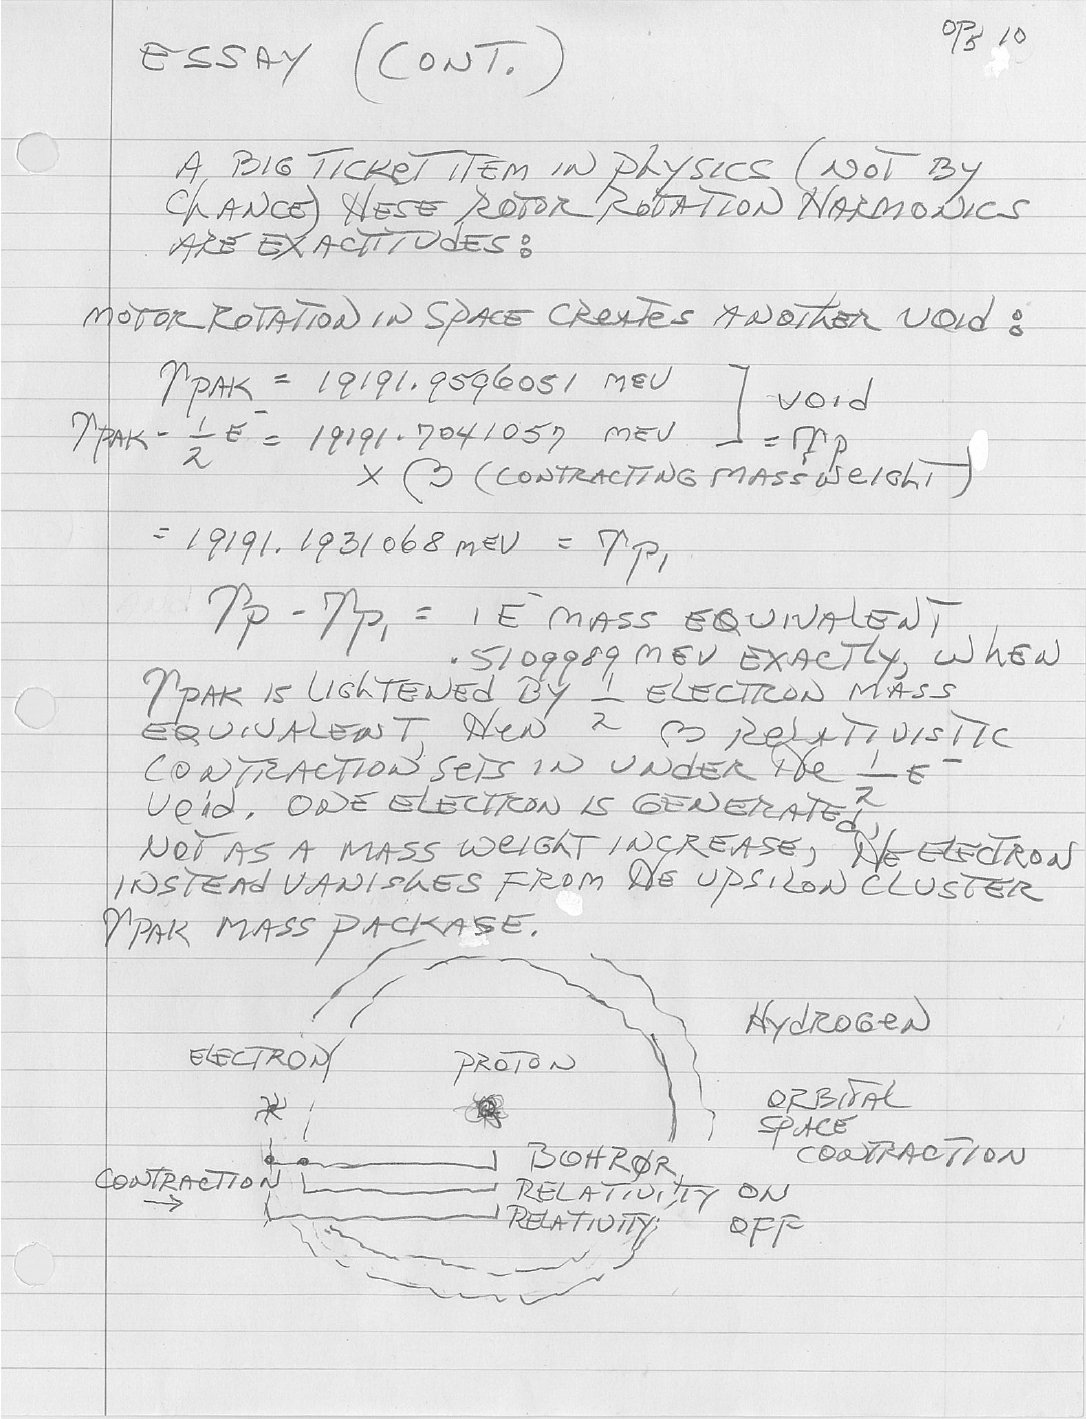 OP5 10
ESSAY (CONT.)
A BIG TICKET ITEM IN PHYSICS (NOT BY
CHANCE) THESE ROTOR ROTATION HARMONICS
ARE EXACTITUDES:
MOTOR ROTATION IN SPACE CREATES ANOTHER VOID:
ϒPAK = 19191.9596051 MEV
VOID
ϒPAK - 1/2 E⁻ = 19191.7041057 MEV
= ϒP
× β (CONTRACTING MASS WEIGHT)
= 19191.1931068 MEV = ϒP₁
ϒP - ϒP₁ = 1 E⁻ MASS EQUIVALENT
.5109989 MEV EXACTLY, WHEN
ϒPAK IS LIGHTENED BY 1/2 ELECTRON MASS
EQUIVALENT, THEN β RELATIVISTIC
CONTRACTION SETS IN UNDER THE 1/2 E⁻
VOID. ONE ELECTRON IS GENERATED,
NOT AS A MASS WEIGHT INCREASE, THE ELECTRON
INSTEAD VANISHES FROM THE UPSILON CLUSTER
ϒPAK MASS PACKAGE.
HYDROGEN
ELECTRON
PROTON
ORBITAL
SPACE
CONTRACTION
BOHR
CONTRACTION
→
RELATIVITY ON
RELATIVITY OFF